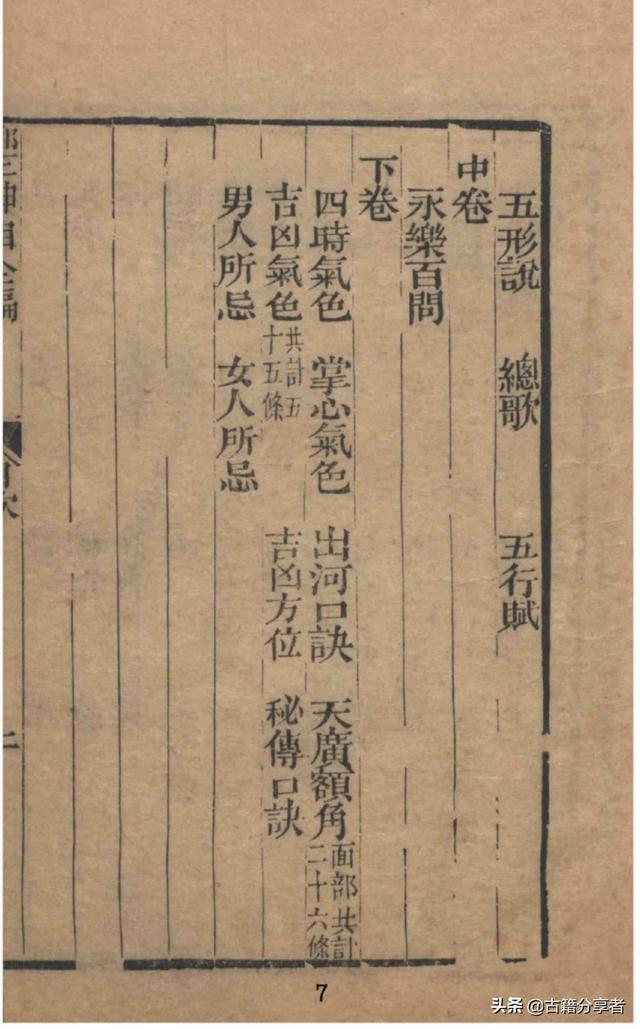 五形說　總歌　五行賦
中卷
永樂百問
下卷
四時氣色　掌心氣色　出河口訣　天廣額角　面部共計二十六條
吉凶氣色　共計五十五條　吉凶方位　秘傳口訣
男人所忌　女人所忌
目次
二
7
头条 @古籍分享者